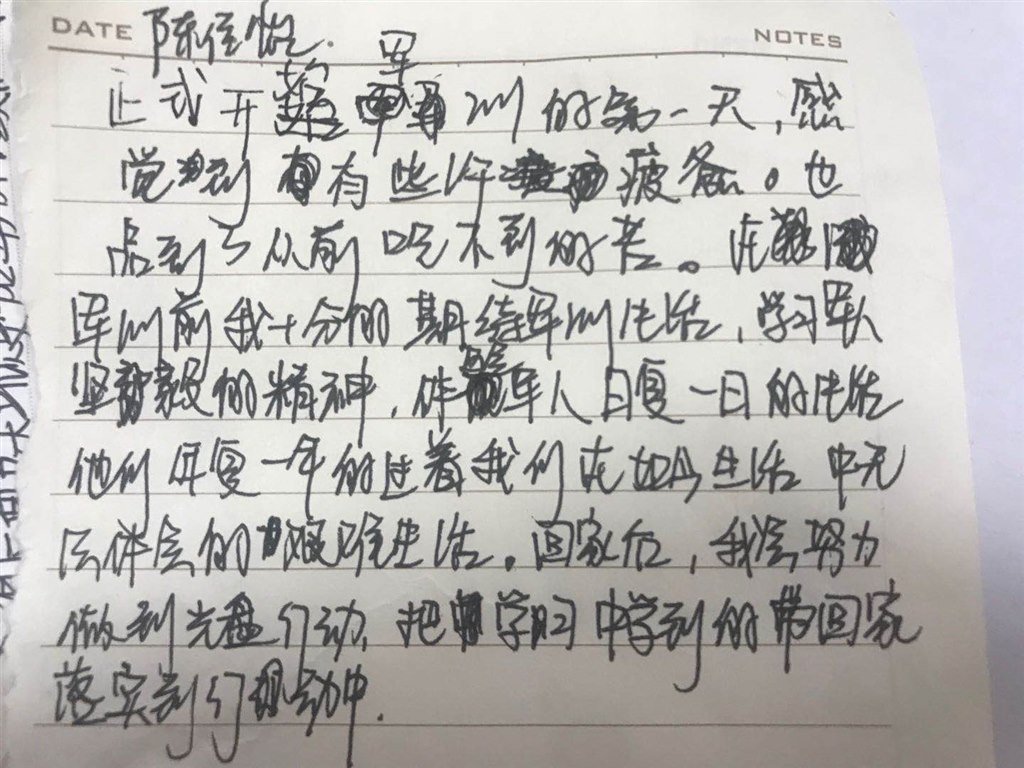 DATE 陈佳怡. NOTES
正式开始军训的第一天，感
觉到有些许疲惫。也
品到了从前吃不到的苦。在
军训前我十分的期待军训生活，学习军人
坚毅的精神，体验军人日复一日的生活
他们年复一年的过着我们在如今生活中无
法体会的艰难生活。回家后，我会努力
做到光盘行动，把学习中学到的带回家
落实到行动中.